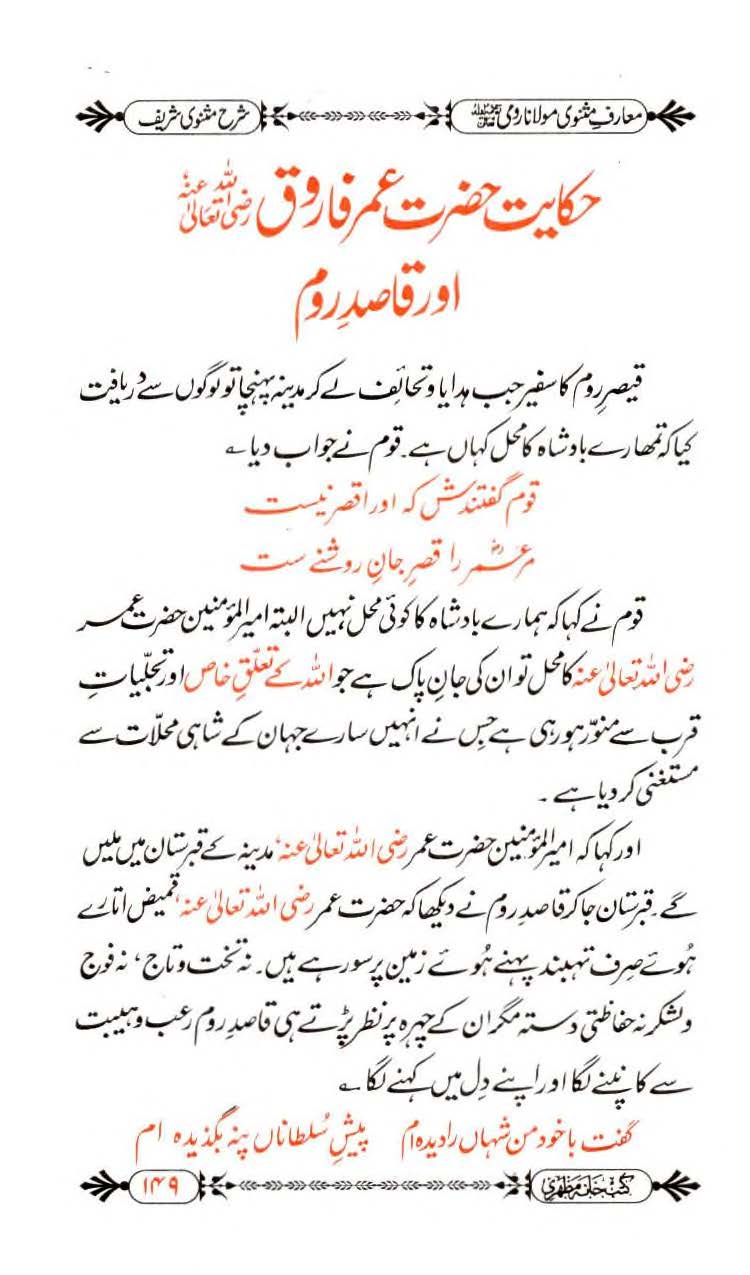 معارفِ مثنوی مولانا رومی رحمۃ اللہ علیہ
شرح مثنوی شریف
حکایت حضرت عمر فاروق رضی اللہ تعالیٰ عنہ
اور قاصدِ روم
قیصرِ روم کا سفیر جب ہدایا و تحائف لے کر مدینہ پہنچا تو لوگوں سے دریافت
کیا کہ تمھارے بادشاہ کا محل کہاں ہے۔ قوم نے جواب دیا ؎
قوم گفتندش کہ او را قصر نیست
مر عمرؓ را قصرِ جانِ روشنے ست
قوم نے کہا کہ ہمارے بادشاہ کا کوئی محل نہیں البتہ امیرالمؤمنین حضرت عمر
رضی اللہ تعالیٰ عنہ کا محل تو ان کی جانِ پاک ہے جو اللہ کے تعلّقِ خاص اور تجلّیاتِ
قرب سے منوّر ہو رہی ہے جس نے انہیں سارے جہان کے شاہی محلّات سے
مستغنی کر دیا ہے ۔
اور کہا کہ امیرالمؤمنین حضرت عمر رضی اللہ تعالیٰ عنہ، مدینہ کے قبرستان میں ملیں
گے۔ قبرستان جا کر قاصدِ روم نے دیکھا کہ حضرت عمر رضی اللہ تعالیٰ عنہ، قمیض اتارے
ہُوئے صِرف تہبند پہنے ہُوئے زمین پر سو رہے ہیں۔ نہ تخت و تاج، نہ فوج
و لشکر نہ حفاظتی دستہ مگر ان کے چہرہ پر نظر پڑتے ہی قاصدِ روم رعب و ہیبت
سے کانپنے لگا اور اپنے دِل میں کہنے لگا ؎
گفت با خود من شہاں را دیدہ ام پیشِ سُلطاناں پنہ بگذیدہ ام
کتب خانہ مظہری
۱۴۹